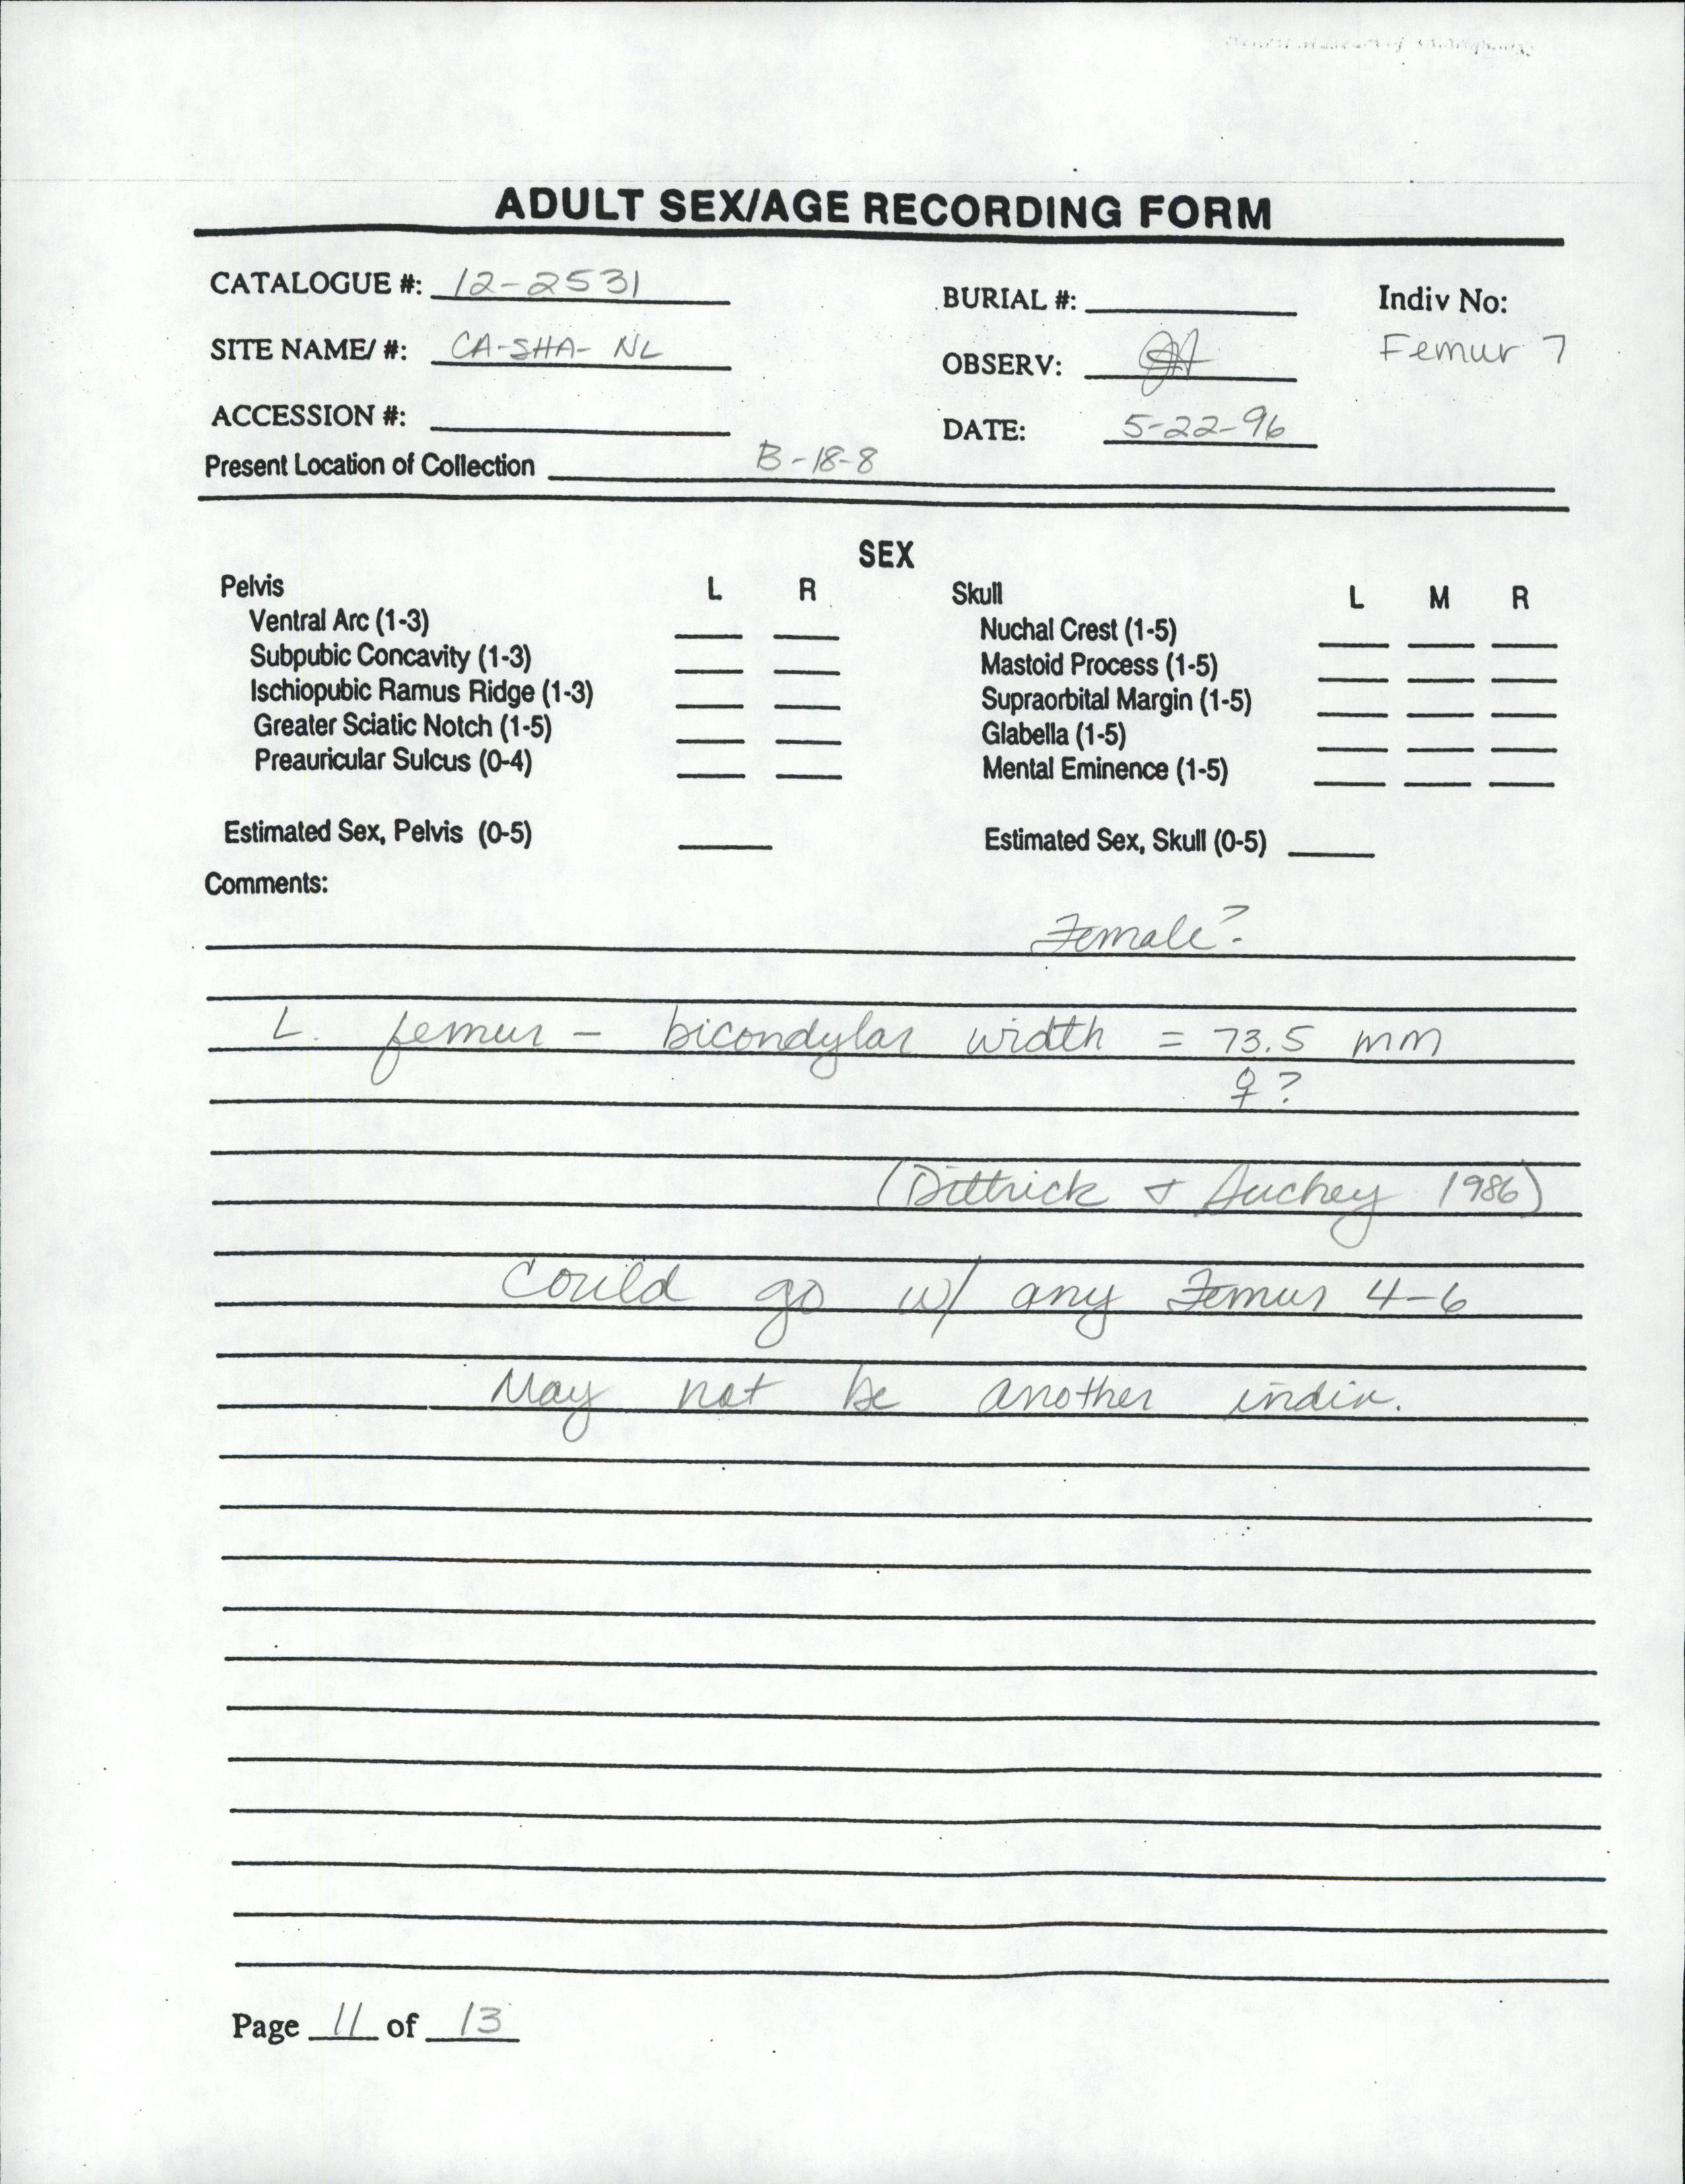 ADULT SEX/AGE RECORDING FORM
CATALOGUE #: 12-2531
BURIAL #:
Indiv No:
SITE NAME/ #: CA-SHA- NL
OBSERV:
Femur 7
ACCESSION #:
DATE: 5-22-96
Present Location of Collection B-18-8
SEX
Pelvis L R
Skull L M R
Ventral Arc (1-3)
Nuchal Crest (1-5)
Subpubic Concavity (1-3)
Mastoid Process (1-5)
Ischiopubic Ramus Ridge (1-3)
Supraorbital Margin (1-5)
Greater Sciatic Notch (1-5)
Glabella (1-5)
Preauricular Sulcus (0-4)
Mental Eminence (1-5)
Estimated Sex, Pelvis (0-5)
Estimated Sex, Skull (0-5)
Comments:
Female?
L. femur - bicondylar width = 73.5 mm
♀ ?
(Dittrick + Suchey 1986)
Could go w/ any Femur 4-6
May not be another indiv.
Page 11 of 13